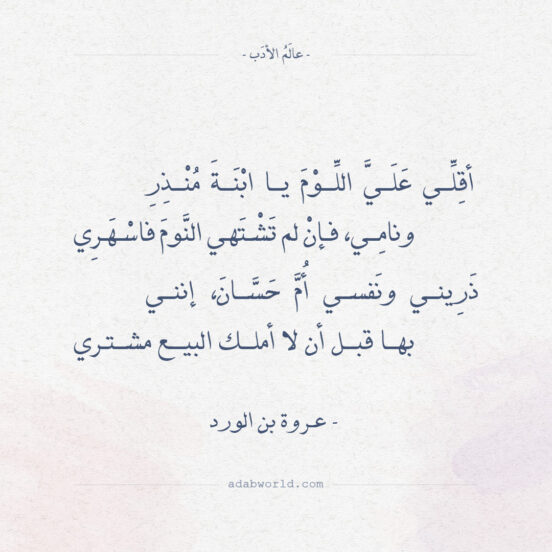 - عالَمُ الأدَب -
أقِلِّي عَلَيَّ اللِّوْمَ يا ابْنَةَ مُنْذِرِ
ونامِي، فإنْ لم تَشْتَهي النَّومَ فاسْهَرِي
ذَرِيني ونَفسي أُمَّ حَسَّانَ، إنني
بها قبل أن لا أملك البيع مشتري
- عروة بن الورد
adabworld.com